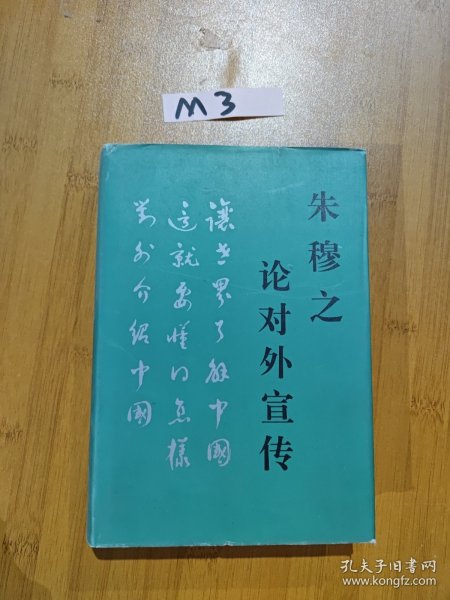 M3
朱穆之
论对外宣传
让世界了解中國
这就要懂得怎樣
对外介绍中國
孔夫子旧书网
www.kongfz.com